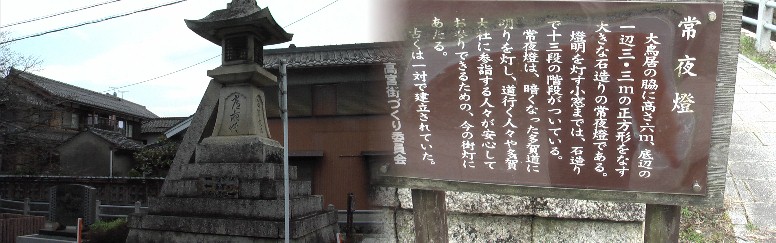 常夜燈
大鳥居の脇に高さ六m、底辺の
一辺三・三mの正方形をなす
大きな石造りの常夜燈である。
燈明を灯す小窓までは、石造り
で十三段の階段がついている。
常夜燈は、暗くなった多賀道に
明りを灯し、道行く人々や多賀
大社に参詣する人々が安心して
お参りできるための、今の街灯に
あたる。
古くは一対で建立されていた。
高宮街づくり委員会
常夜燈